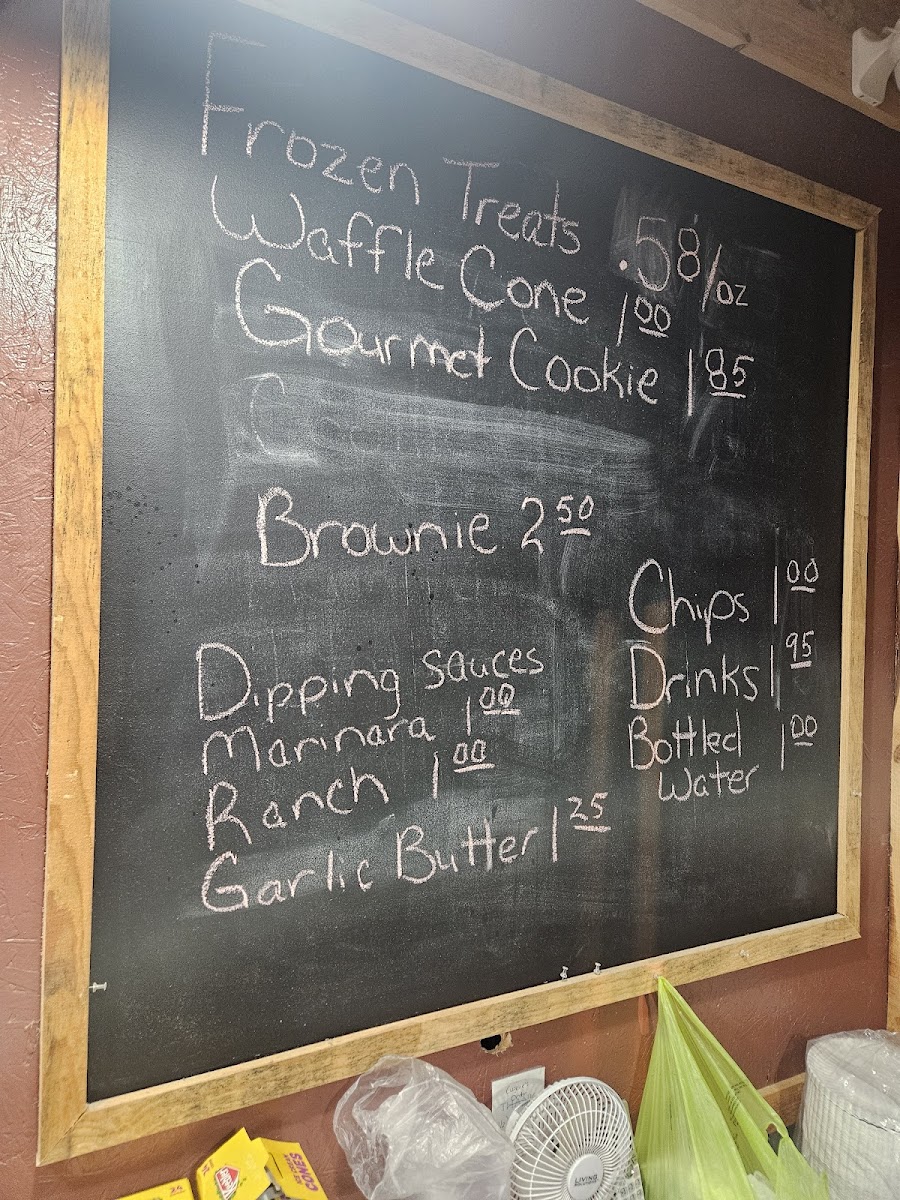 Frozen Treats .58/oz
Waffle Cone 1.00
Gourmet Cookie 1.85
Brownie 2.50
Chips 1.00
Drinks 1.95
Bottled Water 1.00
Dipping sauces
Marinara 1.00
Ranch 1.00
Garlic Butter 1.25
CONES
LIVING